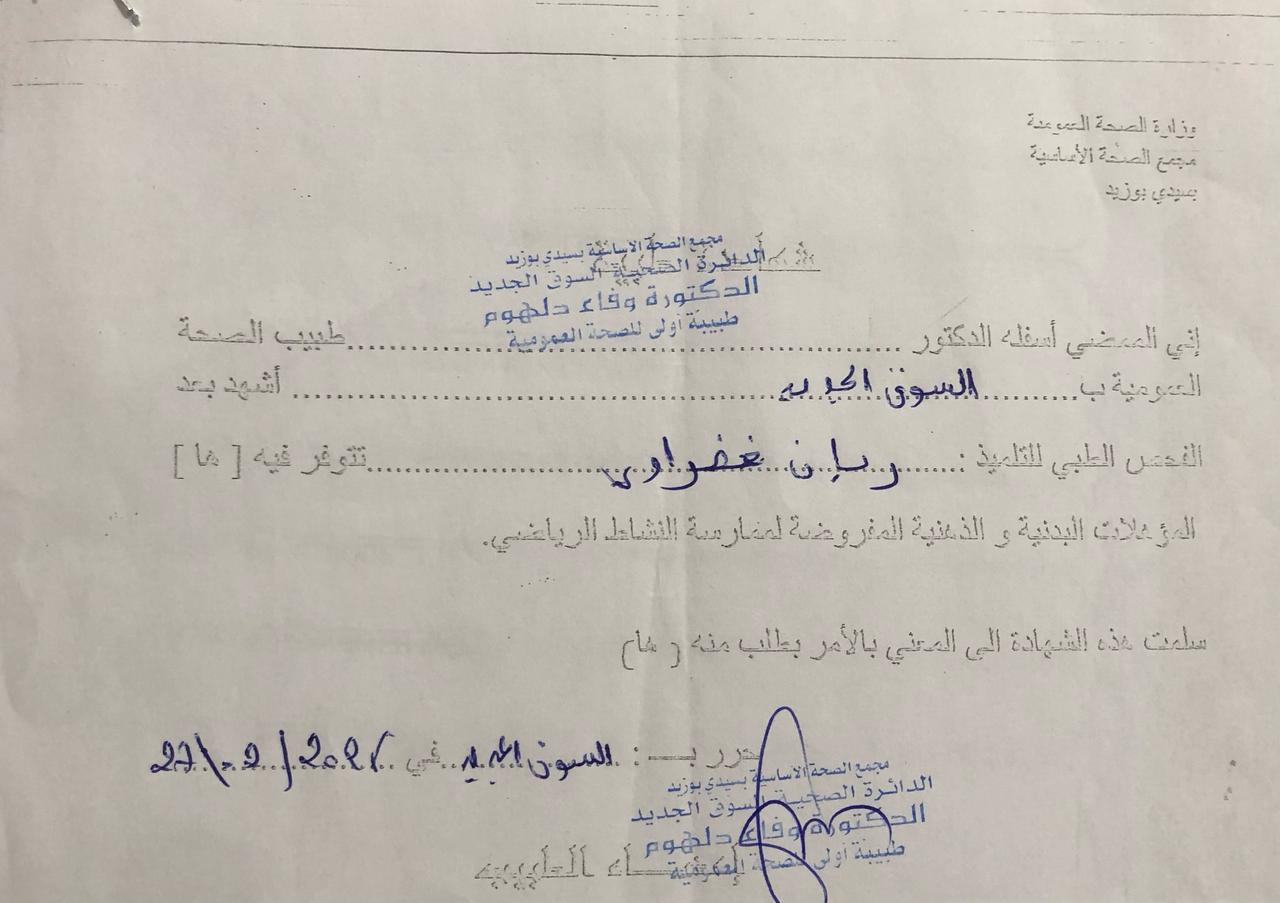 وزارة الصحة العمومية
مجمع الصحة الأساسية
بسيدي بوزيد
مجمع الصحة الاساسية بسيدي بوزيد
الدائرة الصحية السوق الجديد
الدكتورة وفاء دلهوم
طبيبة أولى للصحة العمومية
إني الممضي أسفله الدكتور ........ طبيب الصحة
العمومية ب ........ السوق الجديد ........ أشهد بعد
الفحص الطبي للتلميذ : ........ ريان غضراوي ........ تتوفر فيه [ ها ]
المؤهلات البدنية و الذهنية المفروضة لممارسة النشاط الرياضي.
سلمت هذه الشهادة الى المعني بالأمر بطلب منه ( ها)
حرر بـ : السوق الجديد في
مجمع الصحة الاساسية بسيدي بوزيد
الدائرة الصحية السوق الجديد
الدكتورة وفاء دلهوم
طبيبة أولى للصحة العمومية
إمضاء الطبيب